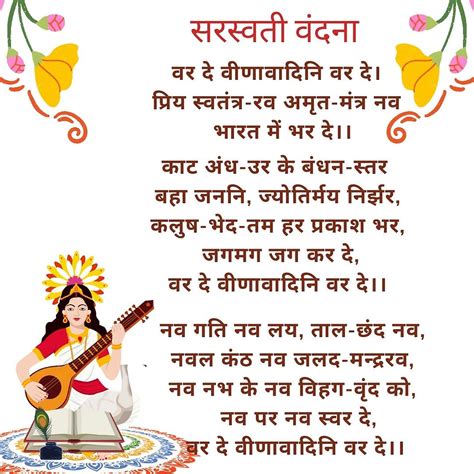 सरस्वती वंदना
वर दे वीणावादिनि वर दे।
प्रिय स्वतंत्र-रव अमृत-मंत्र नव
भारत में भर दे।।
काट अंध-उर के बंधन-स्तर
बहा जननि, ज्योतिर्मय निर्झर,
कलुष-भेद-तम हर प्रकाश भर,
जगमग जग कर दे,
वर दे वीणावादिनि वर दे।।
नव गति नव लय, ताल-छंद नव,
नवल कंठ नव जलद-मन्द्ररव,
नव नभ के नव विहग-वृंद को,
नव पर नव स्वर दे,
वर दे वीणावादिनि वर दे।।